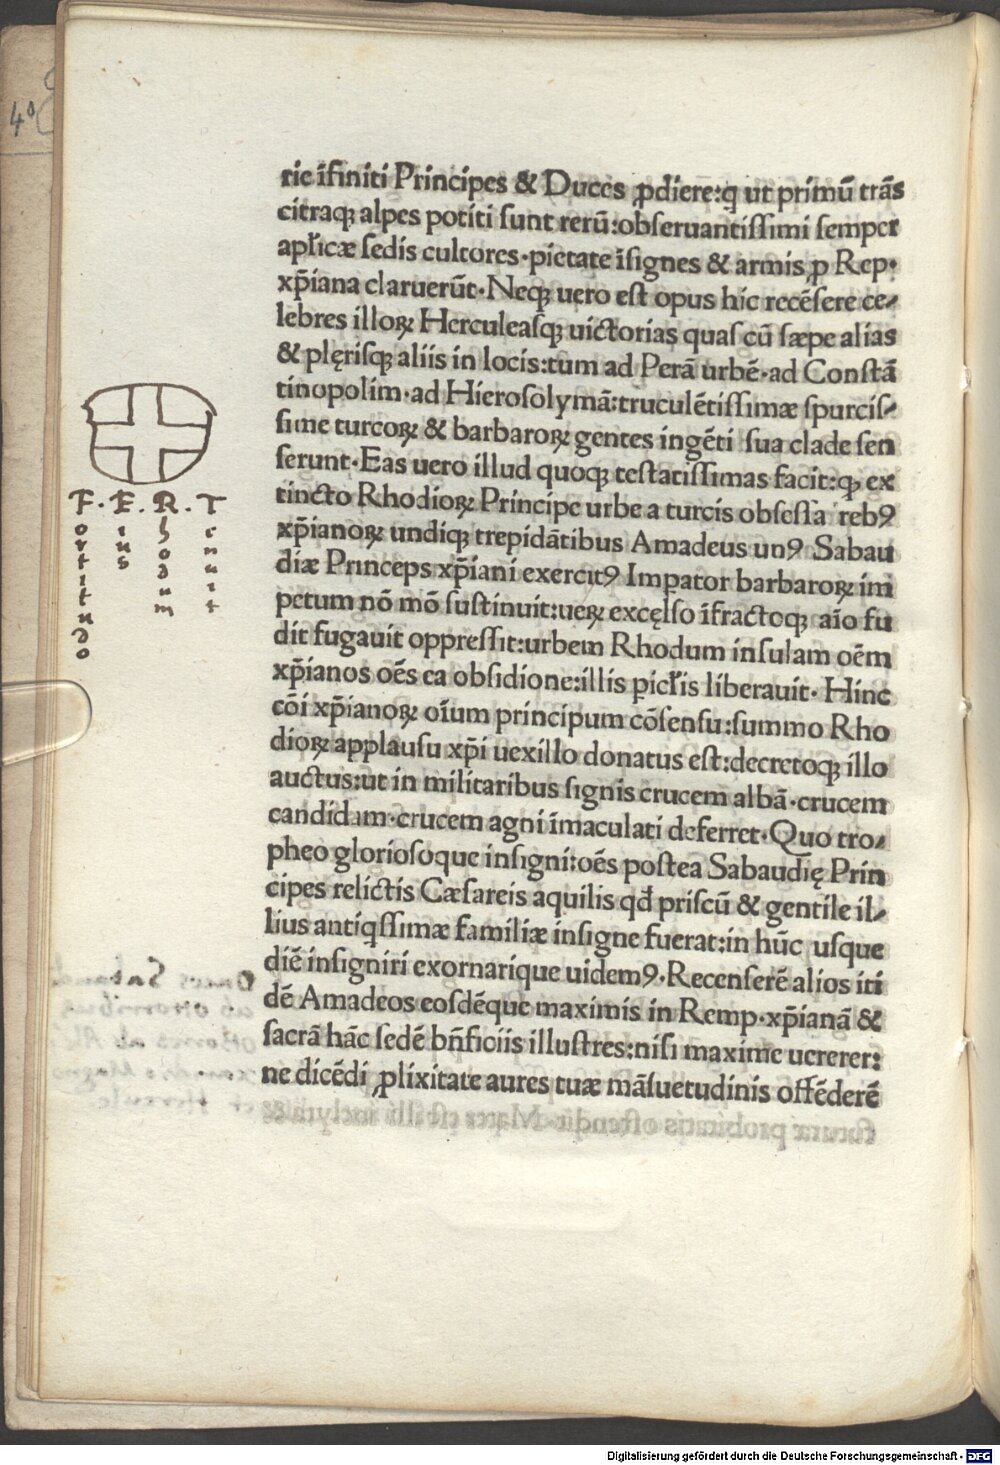 4°
rie īfiniti Principes & Duces ꝓdiere:q̄ ut primū trās
citraqꝫ alpes potiti sunt rerū:obseruantissimi semper
apl̄icæ sedis cultores·pietate īsignes & armis ꝓ Rep·
xp̄iana claruerūt·Neqꝫ uero est opus hic recēsere ce-
lebres illoꝝ Herculeasqꝫ uictorias quas cū sæpe alias
& plęrisqꝫ aliis in locis:tum ad Perā urbē·ad Constā
tinopolim·ad Hierosolymā:truculētissimæ spurcis-
sime turcoꝝ & barbaroꝝ gentes ingēti sua clade sen
serunt·Eas uero illud quoqꝫ testatissimas facit:qꝫ ex
tincto Rhodioꝝ Principe urbe a turcis obsessa rebꝰ
xp̄ianoꝝ undiqꝫ trepidātibus Amadeus unꝰ Sabau
diæ Princeps xp̄iani exercitꝰ Imꝑator barbaroꝝ im
petum nō mō sustinuit:ueꝝ excęlso īfractoqꝫ aīo fu
dit fugauit oppressit:urbem Rhodum insulam oēm
xp̄ianos oēs ea obsidione:illis ꝑicl̄is liberauit· Hinc
cōi xp̄ianoꝝ oīum principum cōsensu:summo Rho
dioꝝ applausu xp̄i uexillo donatus est:decretoqꝫ illo
auctus:ut in militaribus signis crucem albā·crucem
candidam·crucem agni īmaculati deferret·Quo tro-
pheo gloriosoque insigni:oēs postea Sabaudię Prin
cipes relictis Cæsareis aquilis qđ priscū & gentile il-
lius antiqssimæ familiæ insigne fuerat:in hūc usque
diē insigniri exornarique uidemꝰ·Recenserē alios iti
dē Amadeos eosdēque maximis in Remp·xp̄ianā &
sacrā hāc sedē bn̄ficiis illustres:nisi maxime uererer:
ne dicēdi ꝓlixitate aures tuæ māsuetudinis offēderē
F. E. R. T
Fortitudo
Eius
Rhodum
Tenuit
Digitalisierung gefördert durch die Deutsche Forschungsgemeinschaft - DFG